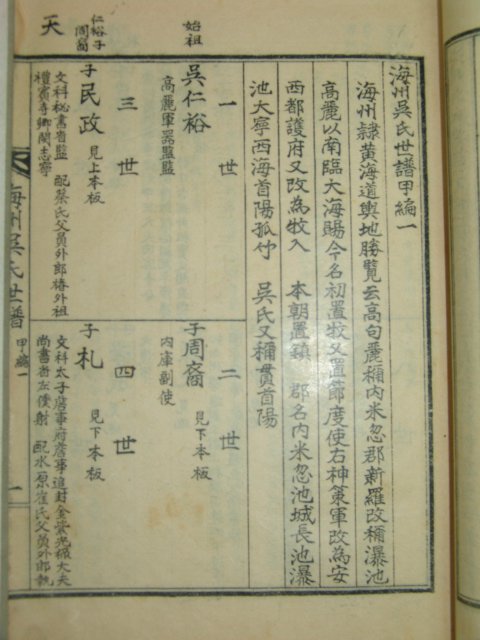 海州吳氏世譜甲編一
海州隷黃海道輿地勝覽云高句麗稱內米忽郡新羅改稱瀑池
高麗以南臨大海賜今名初置牧又置節度使右神策軍改為安
西都護府又改為牧入 本朝置鎮 郡名內米忽池城長池瀑
池大寧西海首陽孤竹 吳氏又稱貫首陽
始祖
一世
吳仁裕
高麗軍器監監
二世
子周裔 見下本板
內庫副使
仁裕子
周裔
天
三世
子民政 見上本板
文科秘書省監 配蔡氏父員外郎椿外祖
禮賓寺卿閔志寧
四世
子札 見下本板
文科太子詹事府詹事追封金紫光祿大夫
尚書省左僕射 配水原崔氏父員外郎
海州吳氏世譜 甲編一 一